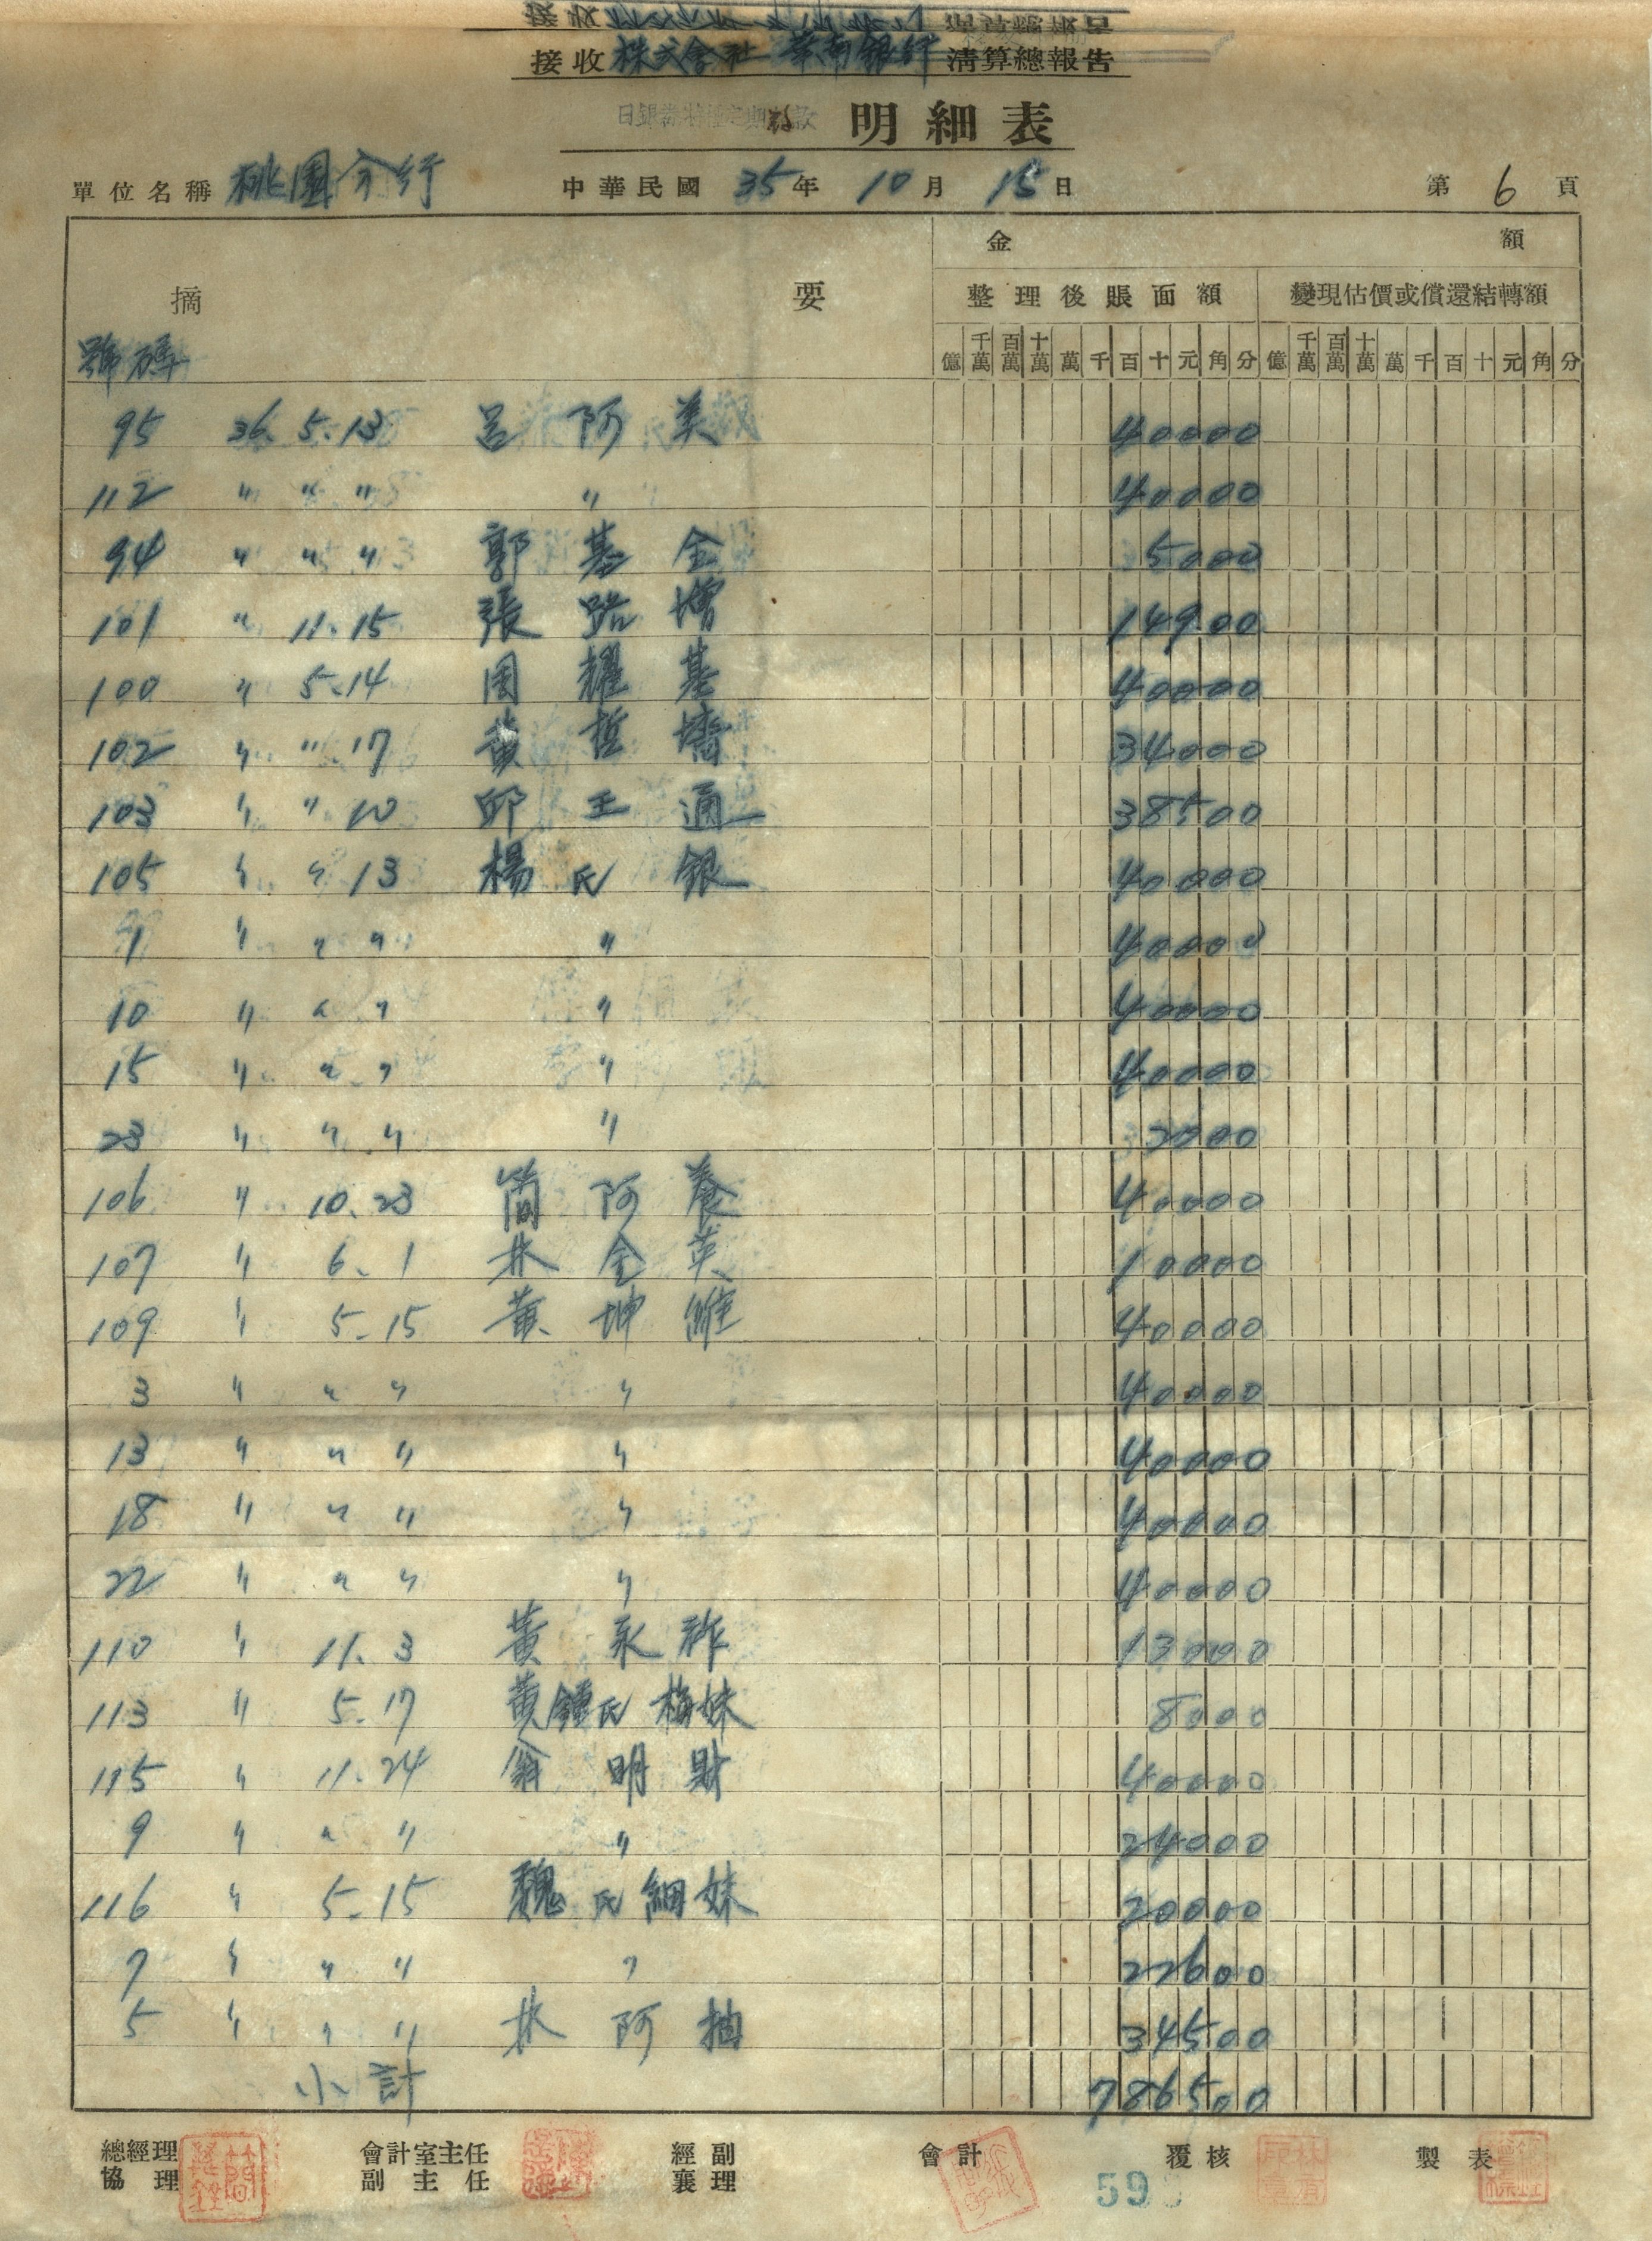 接收株式會社 華南銀行清算總報告
日銀券特種定期存款 明細表
單位名稱 桃園分行 中華民國 35年 10月 15日 第 6 頁
金 額
摘 要 整理後賬面額 變現估價或償還結轉額
號碼 億 千萬 百萬 十萬 萬 千 百 十 元 角 分 億 千萬 百萬 十萬 萬 千 百 十 元 角 分
95 36. 5. 13 呂阿美 40000
112 〃 〃 〃 〃 40000
94 〃 〃 〃 郭基全 5000
101 〃 11. 15 張路增 14900
100 〃 5. 14 周耀基 40000
102 〃 〃 17 黃哲 34000
103 〃 〃 10 邱王通 38500
105 〃 〃 13 楊氏銀 40000
1 〃 〃 〃 〃 40000
10 〃 〃 〃 〃 40000
15 〃 〃 〃 〃 40000
23 〃 〃 〃 〃 2000
106 〃 10. 23 簡阿養 40000
107 〃 6. 1 林金英 10000
109 〃 5. 15 黃坤維 40000
3 〃 〃 〃 〃 40000
13 〃 〃 〃 〃 40000
18 〃 〃 〃 〃 40000
22 〃 〃 〃 〃 40000
110 〃 11. 3 黃永祚 13000
113 〃 5. 17 黃鍾氏梅妹 8000
115 〃 11. 24 翁明財 40000
9 〃 〃 〃 〃 24000
116 〃 5. 15 魏氏細妹 20000
7 〃 〃 〃 〃 22600
5 〃 〃 〃 林阿抽 34500
小計 786500
總經理 會計室主任 經副 會計 覆核 製表
協理 副主任 襄理
59